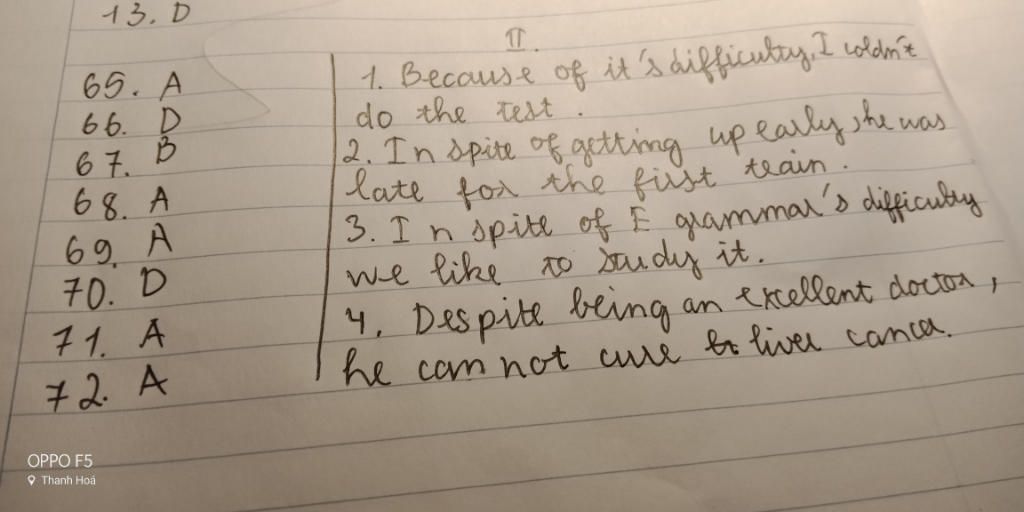 13. D
65. A
66. D
67. B
68. A
69. A
70. D
71. A
72. A
II.
1. Because of it's difficulty, I coldn't
do the test.
2. In spite of getting up early, he was
late for the first train.
3. In spite of E grammar's difficulty
we like to study it.
4. Despite being an excellent doctor,
he can not cure liver cancer.
OPPO F5
Thanh Hoá